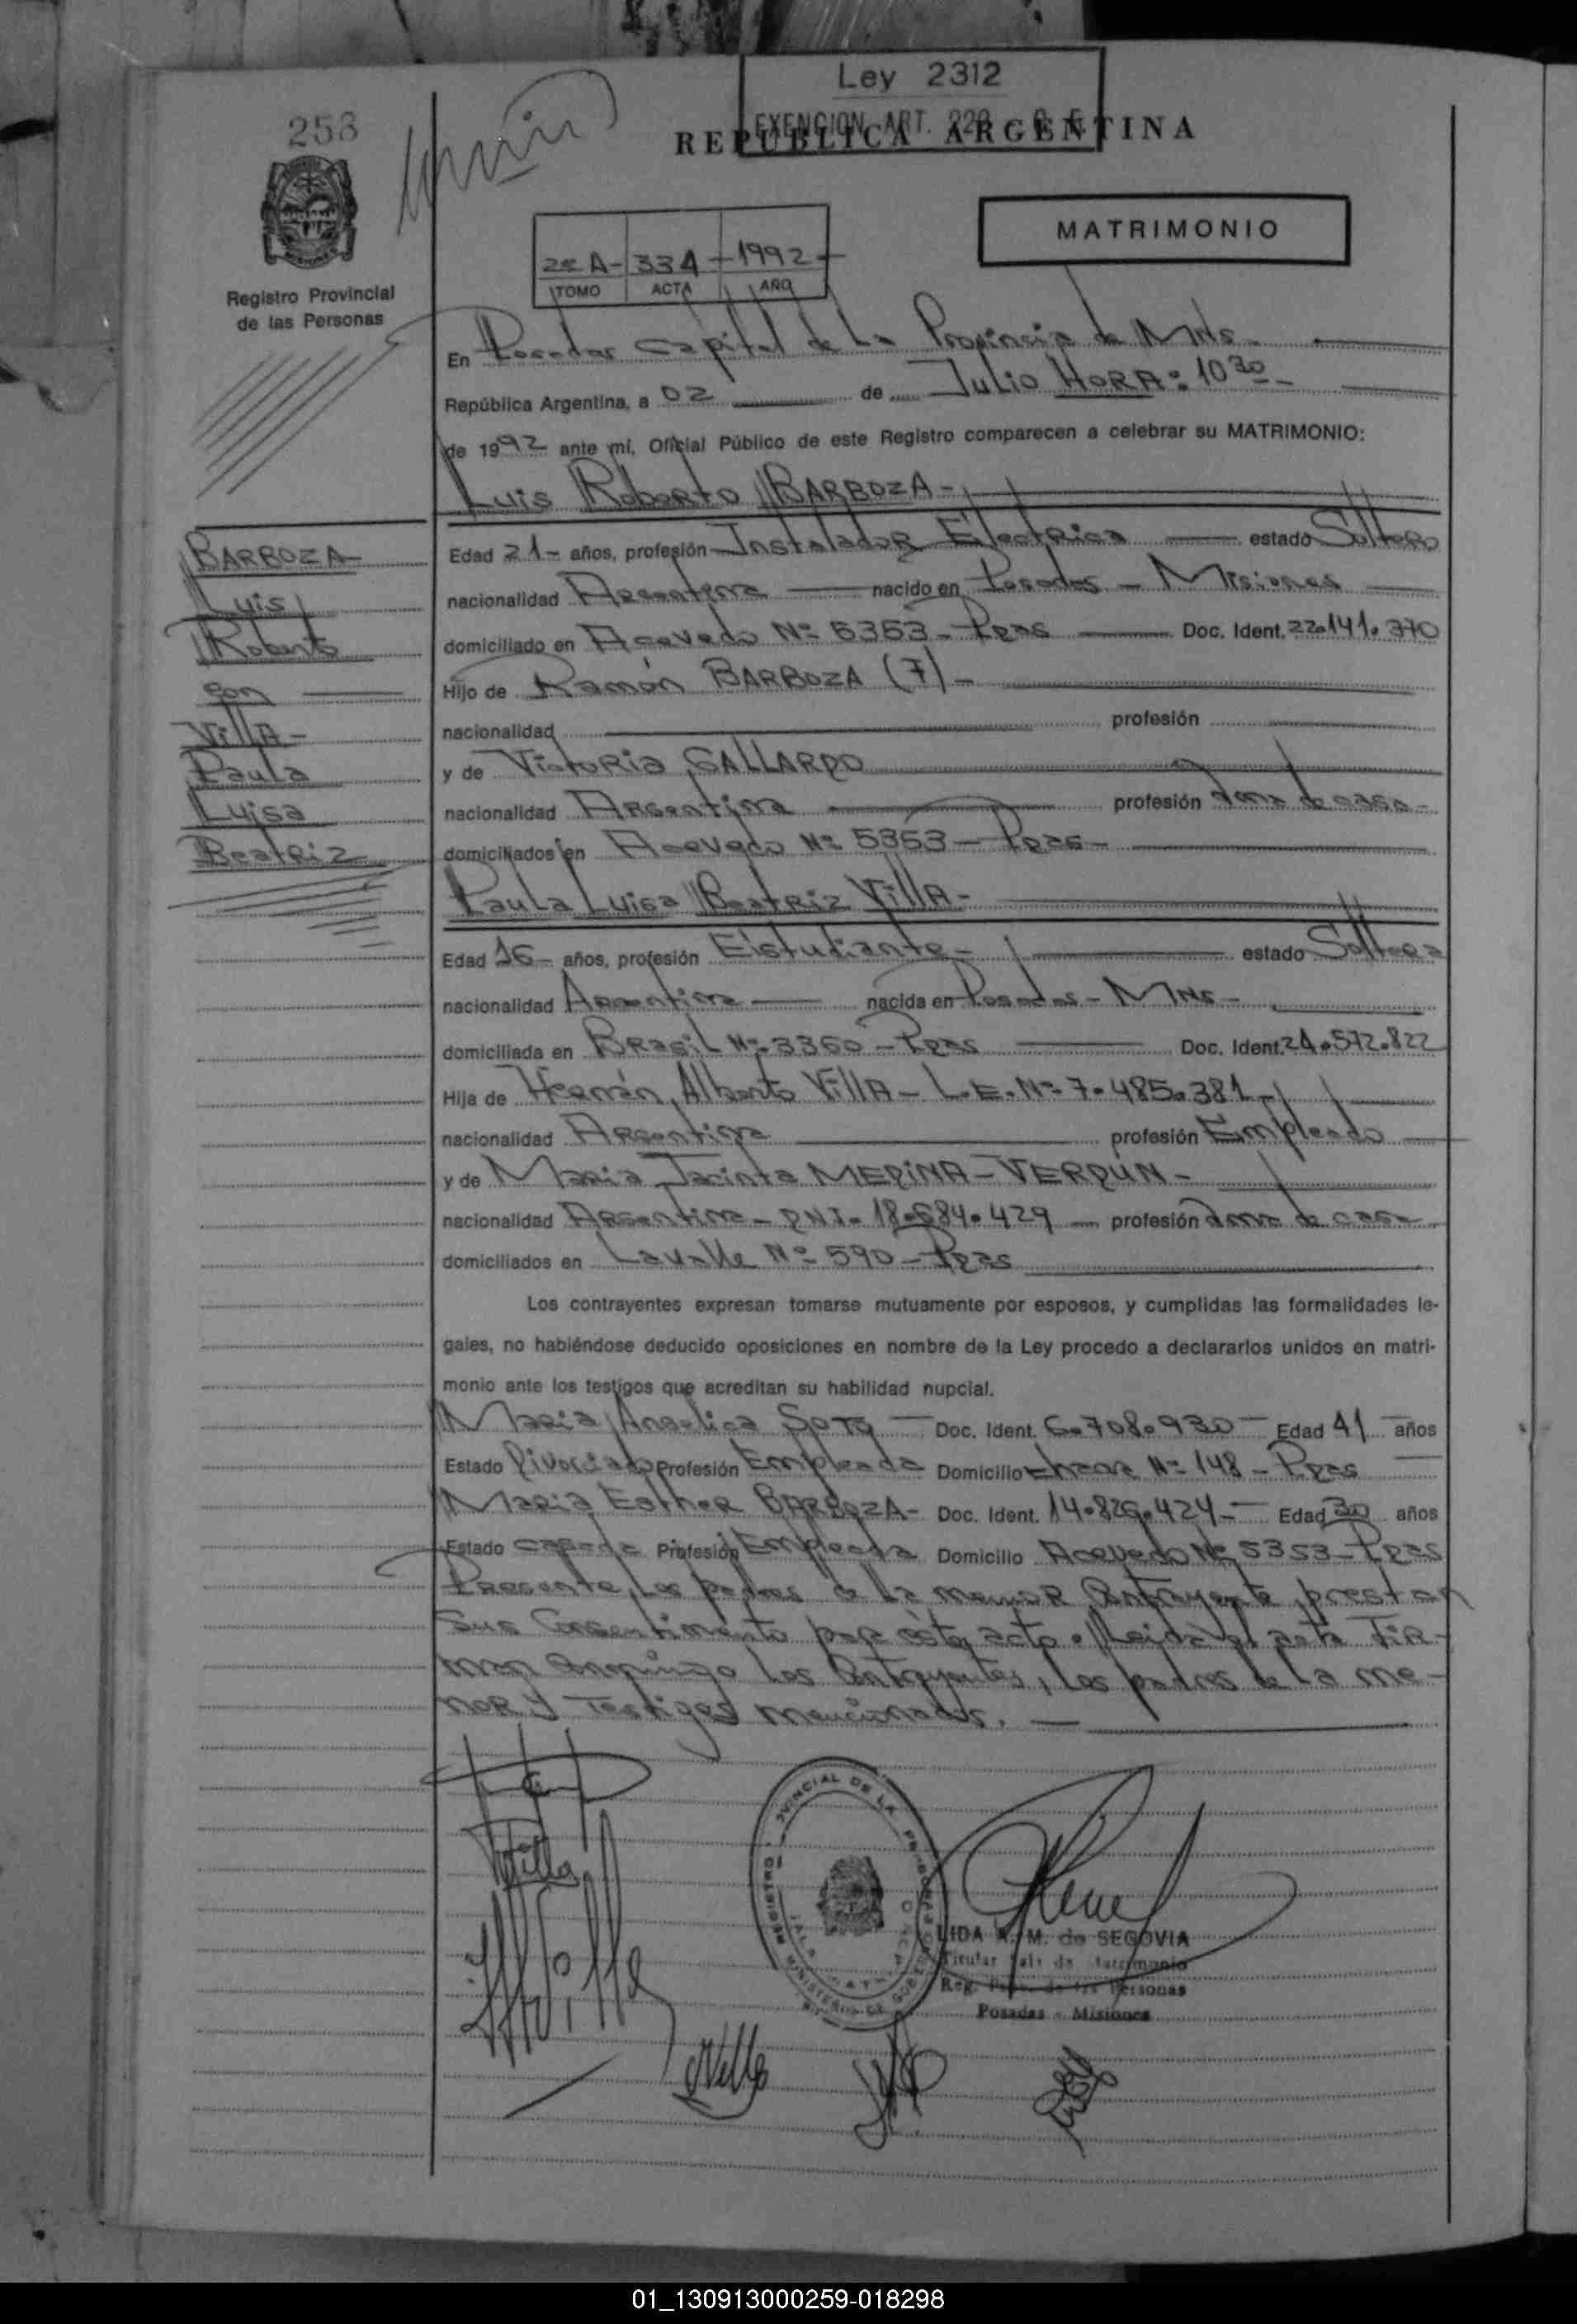 Ley 2312
EXENCION ART. 228 C. F.
253
REPUBLICA ARGENTINA
MATRIMONIO
2º A - 334 - 1992
TOMO ACTA AÑO
Registro Provincial
de las Personas
En Posadas Capital de La Provincia de Mnes.
República Argentina, a 02 de Julio HORA: 10 30
de 1992 ante mí, Oficial Público de este Registro comparecen a celebrar su MATRIMONIO:
Luis Roberto BARBOZA-
BARBOZA
Luis
Roberto
con
Villa-
Paula
Luisa
Beatriz
Edad 21- años, profesión Instalador Electrica estado Soltero
nacionalidad Argentina nacido en Posadas - Misiones
domiciliado en Acevedo Nº 5353 - Pdas Doc. Ident. 22.141.370
Hijo de Ramón BARBOZA (F)-
nacionalidad profesión
y de Victoria GALLARDO
nacionalidad Argentina profesión ama de casa-
domiciliados en Acevedo Nº 5353 - Pdas-
Paula Luisa Beatriz Villa-
Edad 16- años, profesión Estudiante- estado Soltera
nacionalidad Argentina nacida en Posadas - Mnes-
domiciliada en Brasil Nº 3360 - Pdas Doc. Ident. 24.572.822
Hija de Hernán Alberto Villa - L.E. Nº 7.485.381-
nacionalidad Argentina profesión Empleado
y de Maria Jacinta MEDINA - VERDUN-
nacionalidad Argentina - DNI. 18.684.429 profesión ama de casa
domiciliados en Lavalle Nº 590 - Pdas
Los contrayentes expresan tomarse mutuamente por esposos, y cumplidas las formalidades le-
gales, no habiéndose deducido oposiciones en nombre de la Ley procedo a declararlos unidos en matri-
monio ante los testigos que acreditan su habilidad nupcial.
Maria Angelica Soto Doc. Ident. 6.708.930 Edad 41 años
Estado Divorciada Profesión Empleada Domicilio Nº 148 - Pdas
Maria Esther BARBOZA- Doc. Ident. 14.826.424- Edad 30 años
Estado casada Profesión Empleada Domicilio Acevedo Nº 5353 - Pdas
Presente, los padres de la menor Contrayente prestan
sus Consentimento para éste acto. Leida el acta FIR-
man conmigo los Contrayentes, los padres de la me-
nor y Testigos mencionados.
Villa
LIDA M. de SEGOVIA
Titular Sala de Matrimonio
Reg. Prov. de las Personas
Posadas - Misiones
01_130913000259-018298